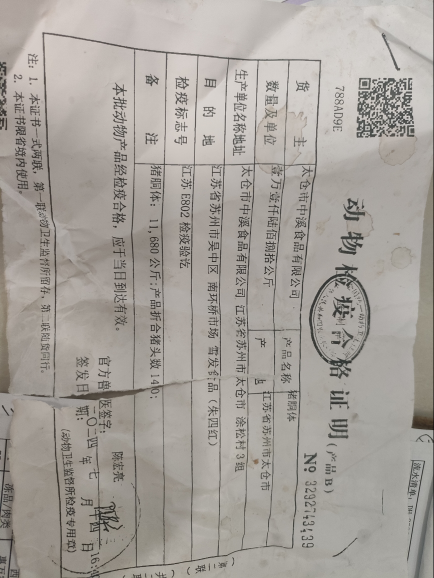 788AD9E
动物检疫合格证明(产品B)
№ 3292743439
货 主 太仓市中溪食品有限公司 产品名称 猪胴体
数量及单位 壹万壹仟陆佰捌拾公斤 产 地 江苏省苏州市太仓市
生产单位名称地址 太仓市中溪食品有限公司 江苏省苏州市太仓市 涂松村3组
目 的 地 江苏省苏州市吴中区 南环桥市场 雪发食品(朱四红)
检疫标志号 江苏 E802 检疫验讫
备 注 猪胴体: 11,680公斤;产品折合猪头数:140;
本批动物产品经检疫合格,应于当日到达有效。
官方兽医签字: 陈宏亮
签发日期: 二〇二四 年 七 月 十四 日 16:
(动物卫生监督所检疫专用章)
注: 1. 本证书一式两联,第一联动物卫生监督所留存,第二联随货同行。
2. 本证书限省境内使用。
(第二联)
流水清单:
冻品/肉类